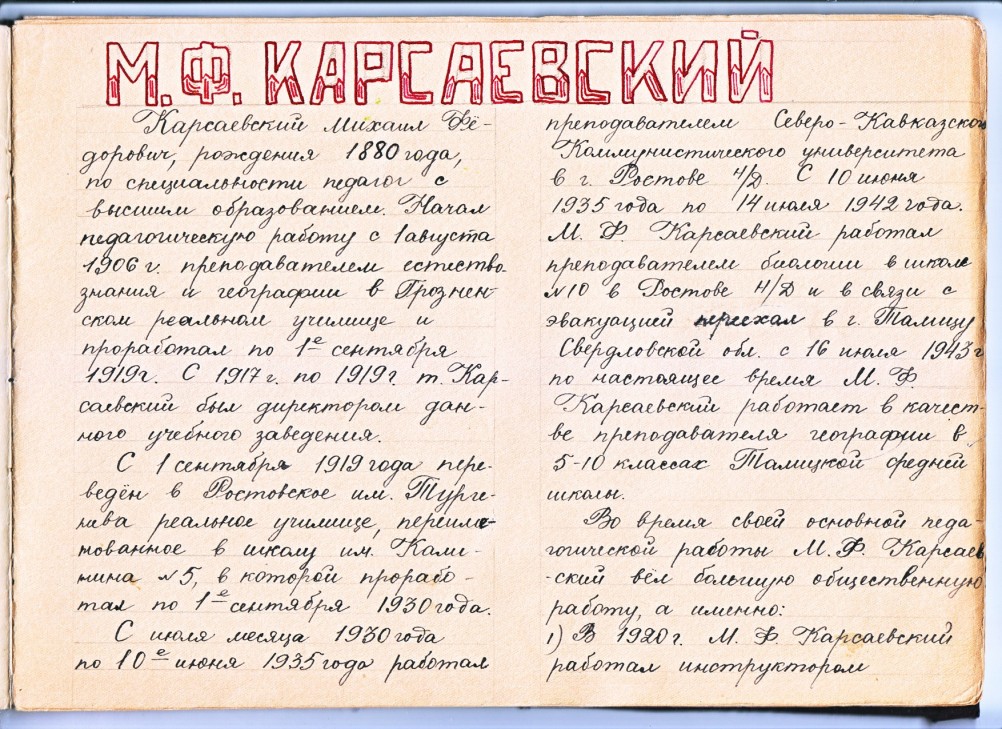 М.Ф. КАРСАЕВСКИЙ
Карсаевский Михаил Фё-
дорович, рождения 1880 года,
по специальности педагог с
высшим образованием. Начал
педагогическую работу с 1 августа
1906 г. преподавателем естество-
знания и географии в Грознен-
ском реальном училище и
проработал по 1е сентября
1919г. С 1917 г. по 1919г. т. Кар-
саевский был директором дан-
ного учебного заведения.
С 1 сентября 1919 года пере-
ведён в Ростовское им. Турге-
нева реальное училище, переиме-
нованное в школу им. Кали-
нина №5, в которой прорабо-
тал по 1е сентября 1930 года.
С июля месяца 1930 года
по 10е июня 1935 года работал
преподавателем Северо-Кавказского
Коммунистического университета
в г. Ростове н/Д. С 10 июня
1935 года по 14 июля 1942 года.
М. Ф. Карсаевский работал
преподавателем биологии в школе
№10 в Ростове н/Д и в связи с
эвакуацией переехал в г. Талицу
Свердловской обл. с 16 июля 1943 г
по настоящее время М. Ф.
Карсаевский работает в качест-
ве преподавателя географии в
5-10 классах Талицкой средней
школы.
Во время своей основной педа-
гогической работы М. Ф. Карсаев
-ский вёл большую общественную
работу, а именно:
1) В 1920 г. М. Ф. Карсаевский
работал инструктором